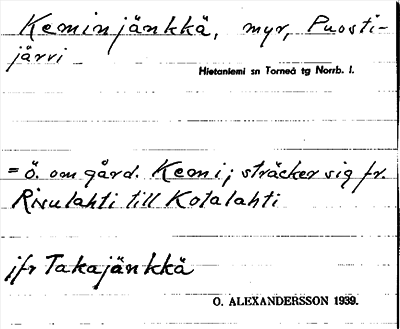 Keminjänkkä, myr, Puosti-
järvi
Hietaniemi sn Torneå tg Norrb. l.
= ö. om gård. Kemi; sträcker sig fr.
Risulahti till Kotalahti
jfr Takajänkkä
O. ALEXANDERSSON 1939.